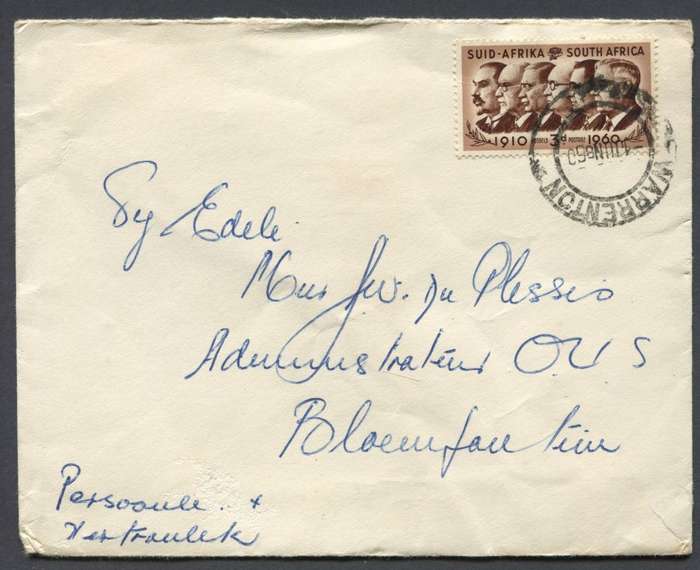 SUID-AFRIKA SOUTH AFRICA
1910 POSSEËL 3d POSTAGE 1960
WARRENTON
Sy Edele
Mnr J.W. Du Plessis
Administrateur OVS
Bloemfontein
Persoonlik +
Vertroulik